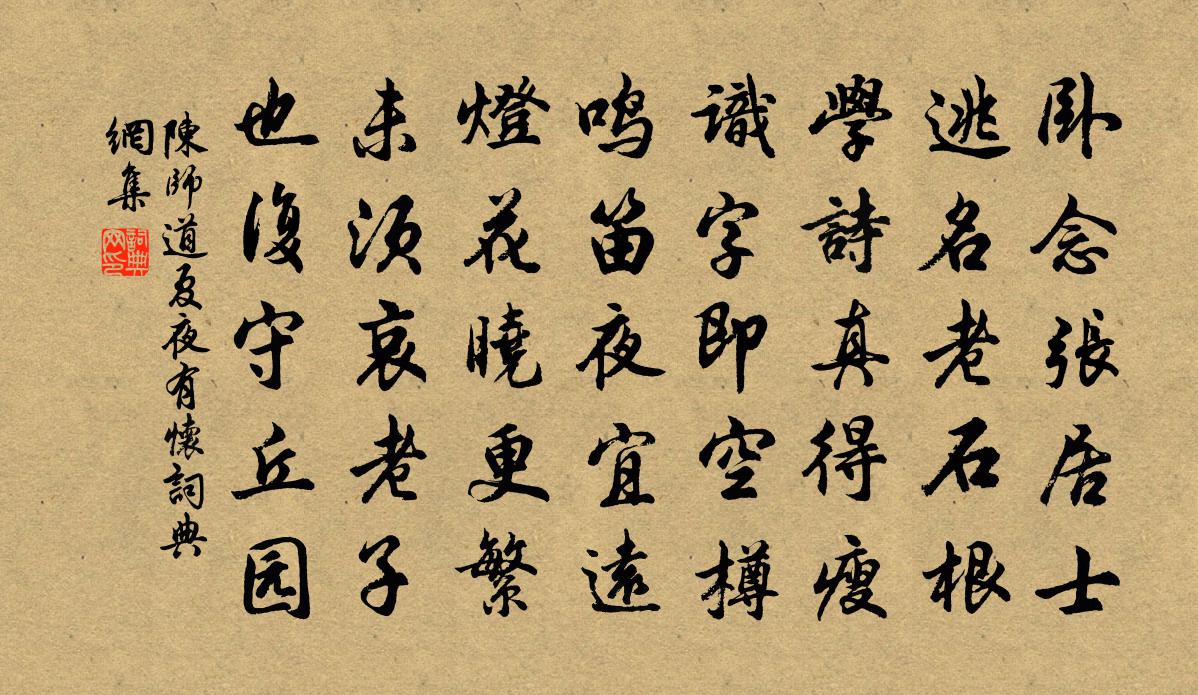 卧念張居士
逃名老石根
學詩真得瘦
識字即空樽
鳴笛夜宜遠
燈花曉更繁
未須哀老子
也復守丘园
陳師道夏夜有懷詞典
網集
詞典
网印